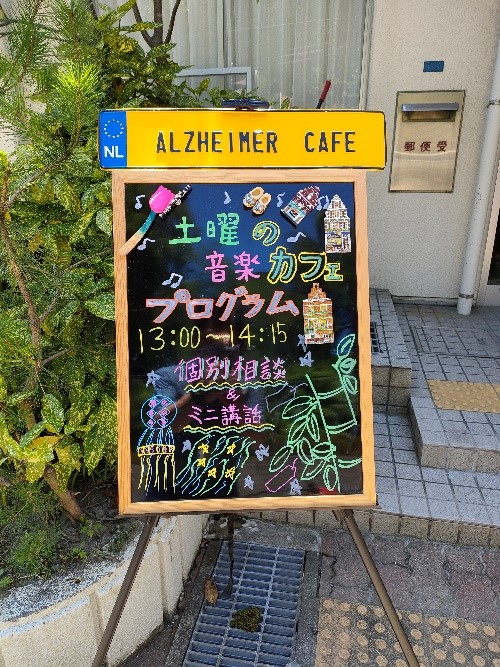 NL ALZHEIMER CAFE
郵便受
土曜の
音楽カフェ
プログラム
13:00～14:15
個別相談
&
ミニ講話